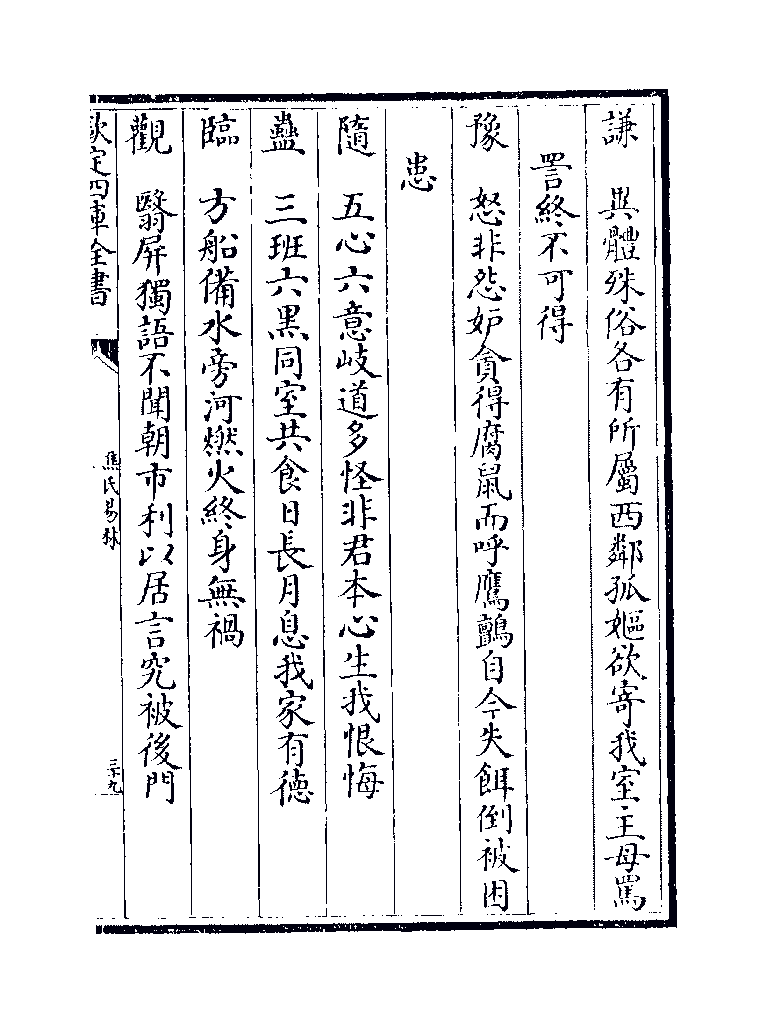 謙　異體殊俗各有所屬西鄰孤嫗欲寄我室主母罵
詈終不可得
豫　怒非怨妒貪得腐鼠而呼鷹鸇自令失餌倒被困
患
隨　五心六意岐道多怪非君本心生我恨悔
蠱　三班六黑同室共食日長月息我家有德
臨　方船備水旁河燃火終身無禍
觀　翳屏獨語不聞朝市利以居言究被後門
欽定四庫全書
焦氏易林
三十九